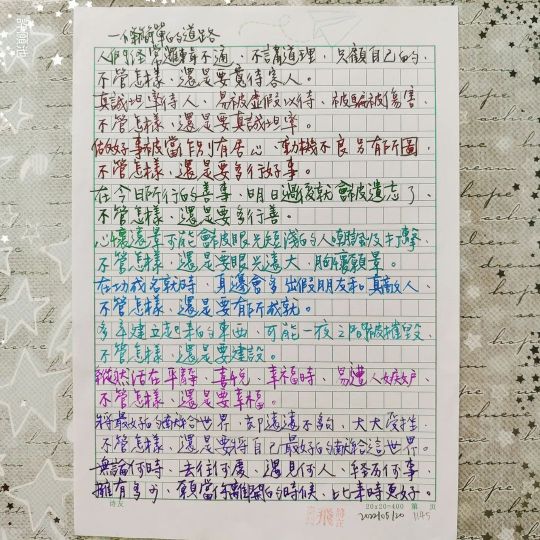 一條簡單的道路
人們經常邏輯不通、不講道理、只顧自己的,
不管怎樣,還是要寬待客人。
真誠坦率待人、易被虛假以待、被騙被傷害
不管怎樣,還是要真誠坦率。
做好事被當作別有居心、動機不良另有所圖
不管怎樣,還是要多行好事。
在今日所行的善事,明日過後就會被遺忘了
不管怎樣,還是要多行善。
心懷遠景可能會被眼光短淺的人嘲諷及打擊
不管怎樣,還是要眼光遠大、胸懷願景。
在功成名就時,身邊會多出假朋友和真敵人、
不管怎樣,還是要有所成就。
多年建立起來的東西,可能一夜之間被摧毀
不管怎樣,還是要建設。
活在平靜、喜悅、幸福時、易遭人嫉妒
不管怎樣,還是要幸福。
將最好的獻給世界,卻遠遠不夠,
不管怎樣,還是要將自己最好的獻給這世界。
無論何時、去往何處、遇見何人、經历何事
擁有多少,願當你離開的時候,比來時更好。
20x20=400 第 頁
2022/05/20 1145